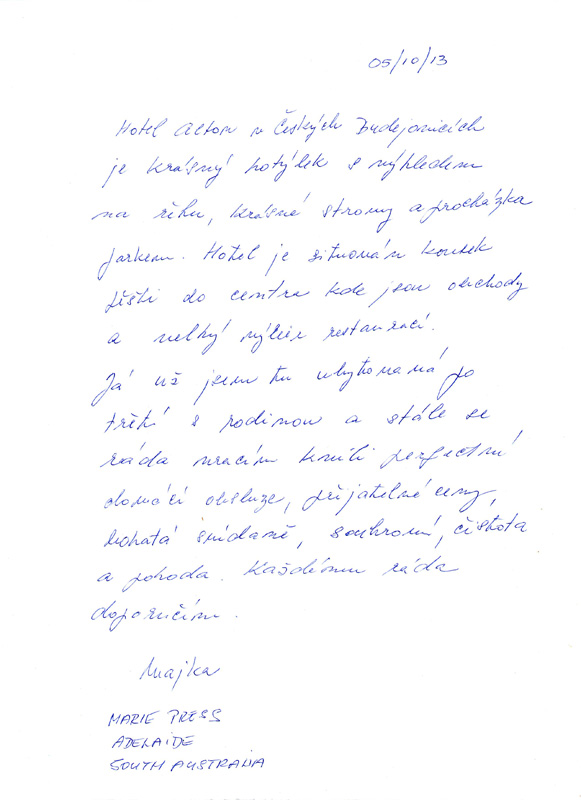 05/10/13
Hotel Alton v Českých Budejovicích
je krásný hotýlek s výhledem
na řeku, krásné stromy a procházka
parkem. Hotel je situován kousek
pěští do centra kde jsou obchody
a velký výběr restaurací.
Já už jsem tu ubytovaná po
třetí s rodinou a stále se
ráda vracím kvuli perfectní
domácí obsluze, přijatelné ceny,
bohatá snídaně, soukromí, čistota
a pohoda. Každému ráda
doporučím.
Majka
MARIE PRESS
ADELAIDE
SOUTH AUSTRALIA